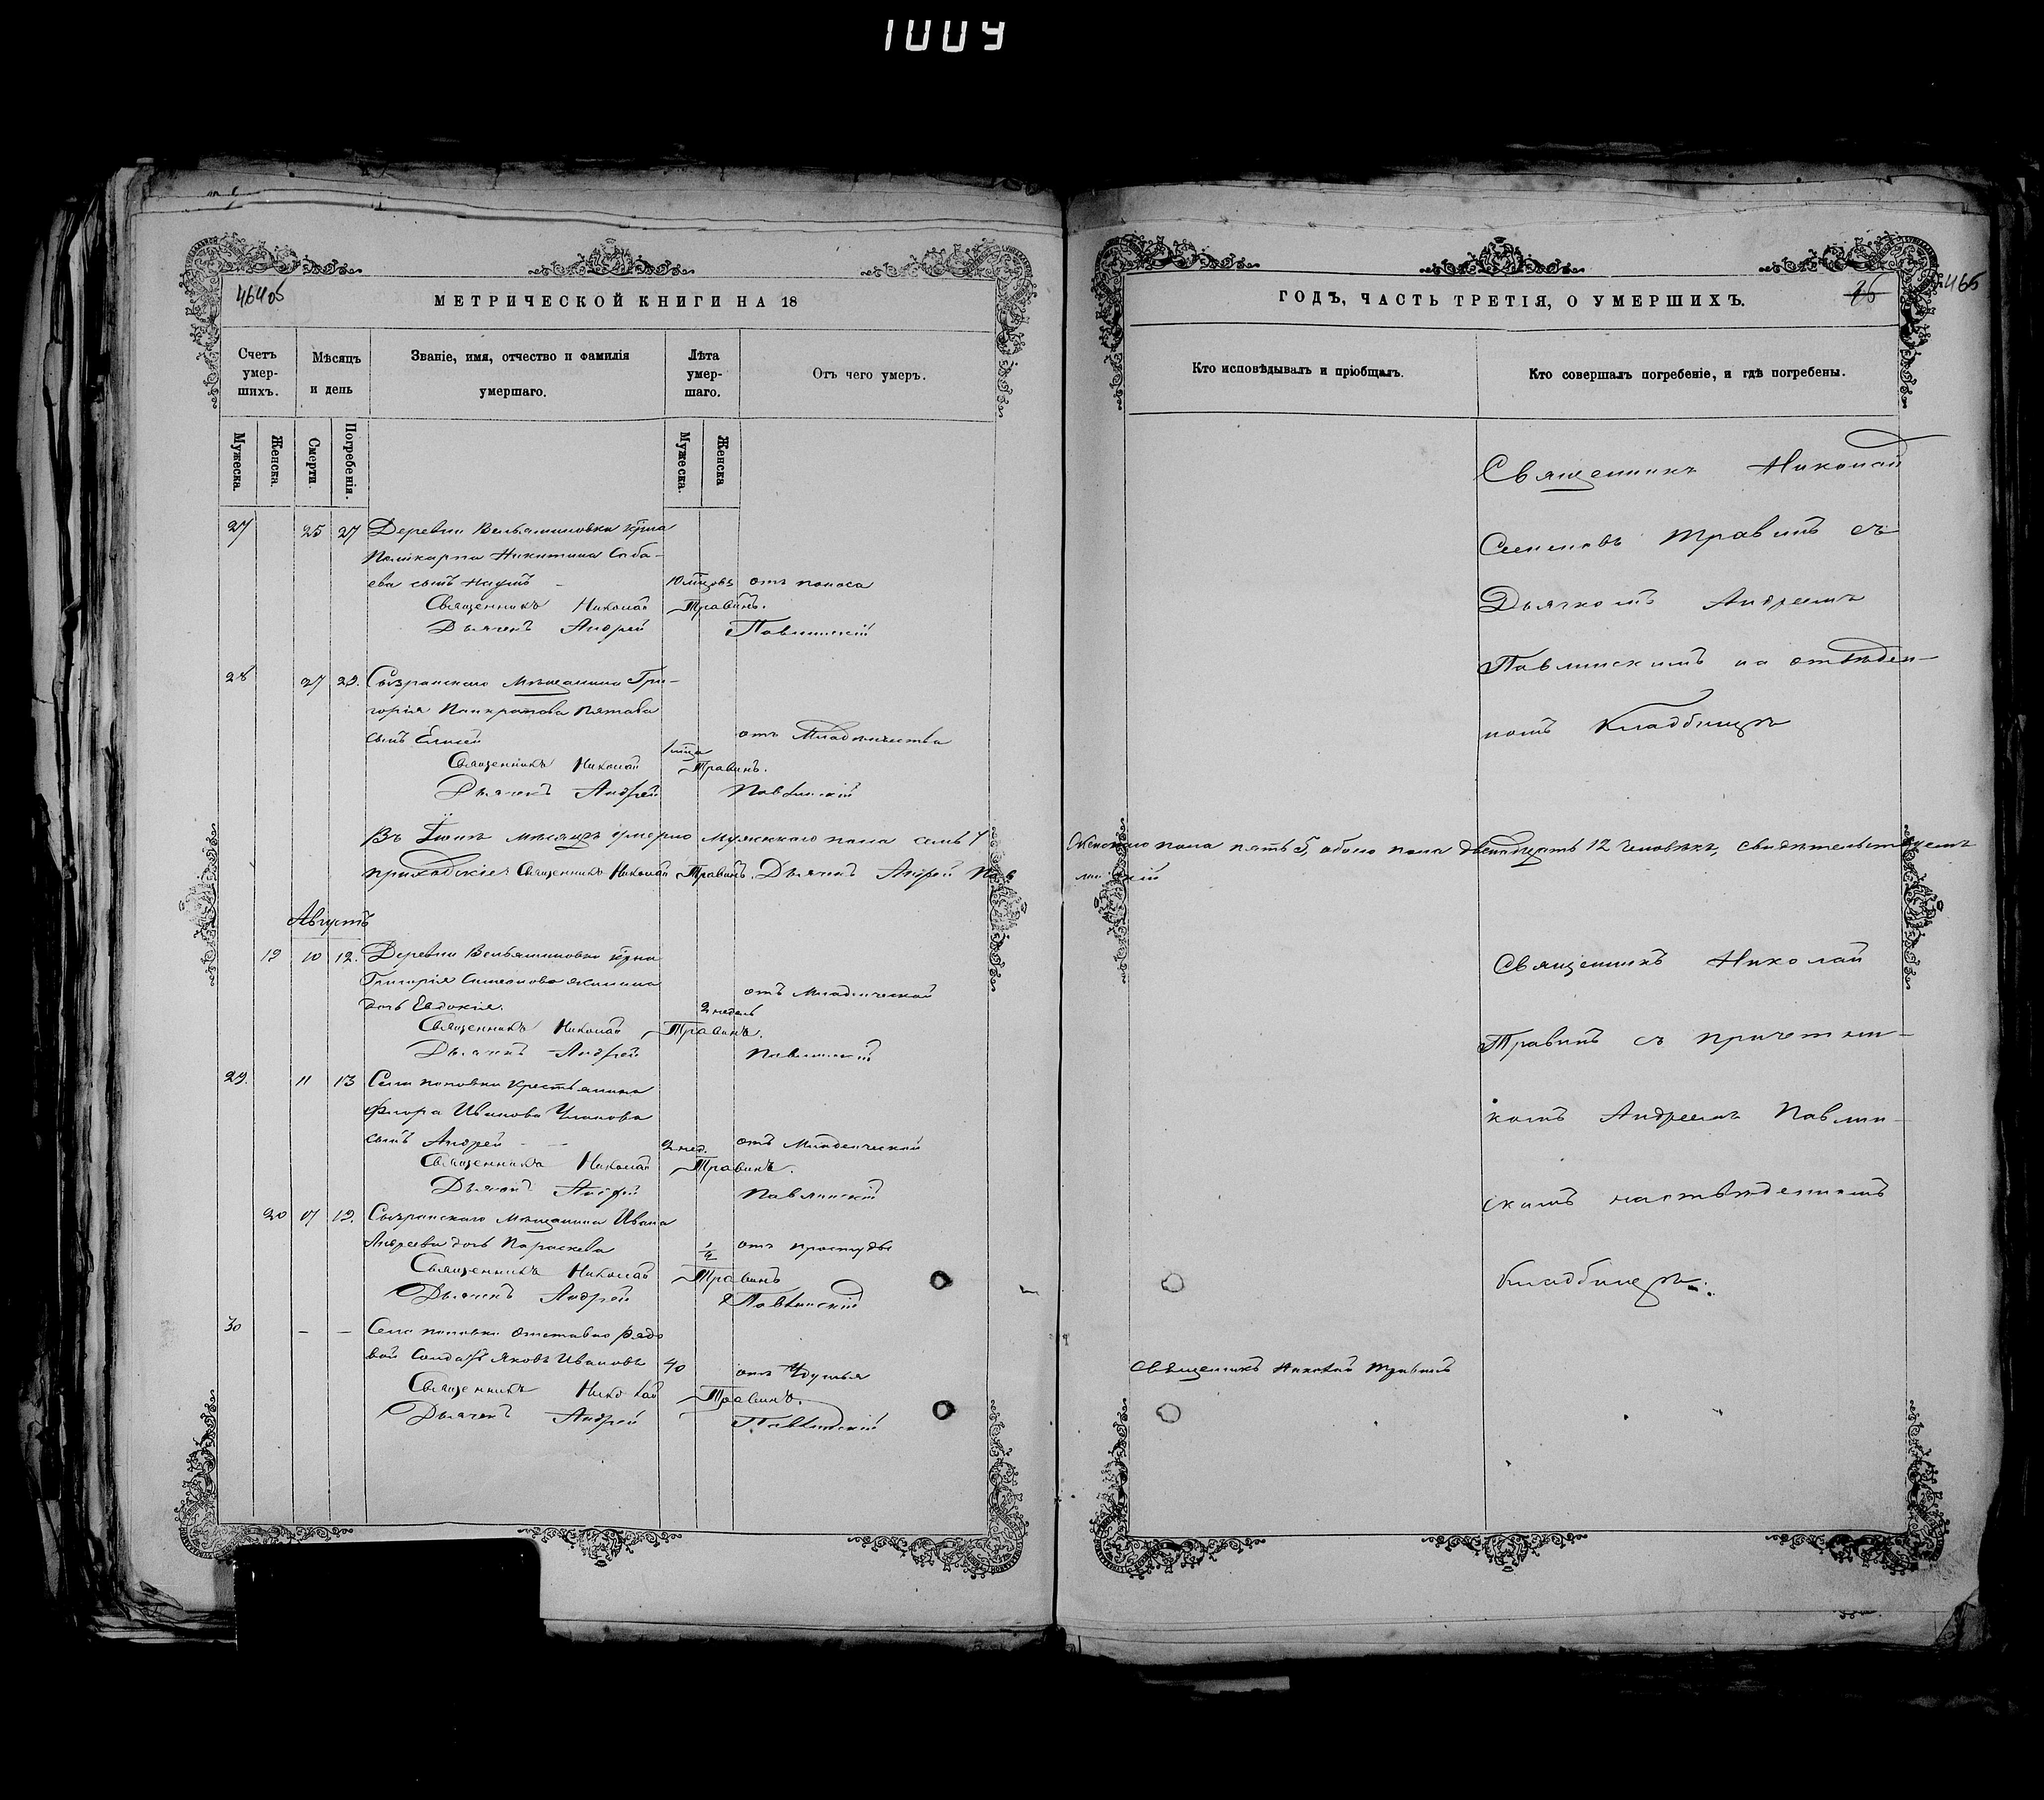 1009
464об
МЕТРИЧЕСКОЙ КНИГИ НА 18
Счетъ умер-шихъ.
Мѣсяцъ и день
Званіе, имя, отчество и фамилія умершаго.
Лѣта умер-шаго.
Отъ чего умеръ.
Мужеска.
Женска.
Смерти.
Погребенія.
Мужеска.
Женска
27 25 27 Деревни Вельяминовки
Поликарпа Никитина Саба-
ева сынъ Наумъ 10 отъ поноса
Священникъ Николай Травинъ.
Дьячекъ Андрей Павлинскій
28 27 29. Сызранскаго Мѣщанина Гри-
горія Панкратова
сынъ Елисей отъ Младенчества
Священникъ Николай Травинъ.
Дьячекъ Андрей Павлинскій
Въ Іюлѣ мѣсяцѣ умерло мужескаго пола семь 7
Священникъ Николай Травинъ. Дьячекъ Андрей Пав
Августъ
19 10 12. Деревни Вельяминовки
Григорія
дочь Евдокія. 2 недель отъ Младенческой
Священникъ Николай Травинъ.
Дьячекъ Андрей Павлинскій
29. 11 13 Села поповки крестьянина
Флора Иванова
сынъ Андрей 2 нед. отъ Младенческой
Священникъ Николай Травинъ.
Дьячекъ Андрей Павлинскій
20 17 19. Сызранскаго Мѣщанина Ивана
Андреева дочь Параскева отъ простуды
Священникъ Николай Травинъ
Дьячекъ Андрей Павлинскій
30 – – Села поповки
Солдатъ Яковъ Ивановъ 40 отъ Удушья
Священникъ Николай Травинъ.
Дьячекъ Андрей Павлинскій
ГОДЪ, ЧАСТЬ ТРЕТІЯ, О УМЕРШИХЪ.
465
Кто исповѣдывалъ и пріобщалъ.
Кто совершалъ погребеніе, и гдѣ погребены.
Священникъ Николай
Семеновъ Травинъ съ
Дьячкомъ Андреемъ
Павлинскимъ на отвѣден-
номъ Кладбищѣ
Женскаго пола пять 5, обоего пола двенадцать 12 человѣкъ, свидѣтельствуемъ
линскій
Священникъ Николай
Травинъ съ причетни-
комъ Андреемъ Павлин-
скимъ на отвѣденномъ
Кладбищѣ.
Священникъ Николай Травинъ